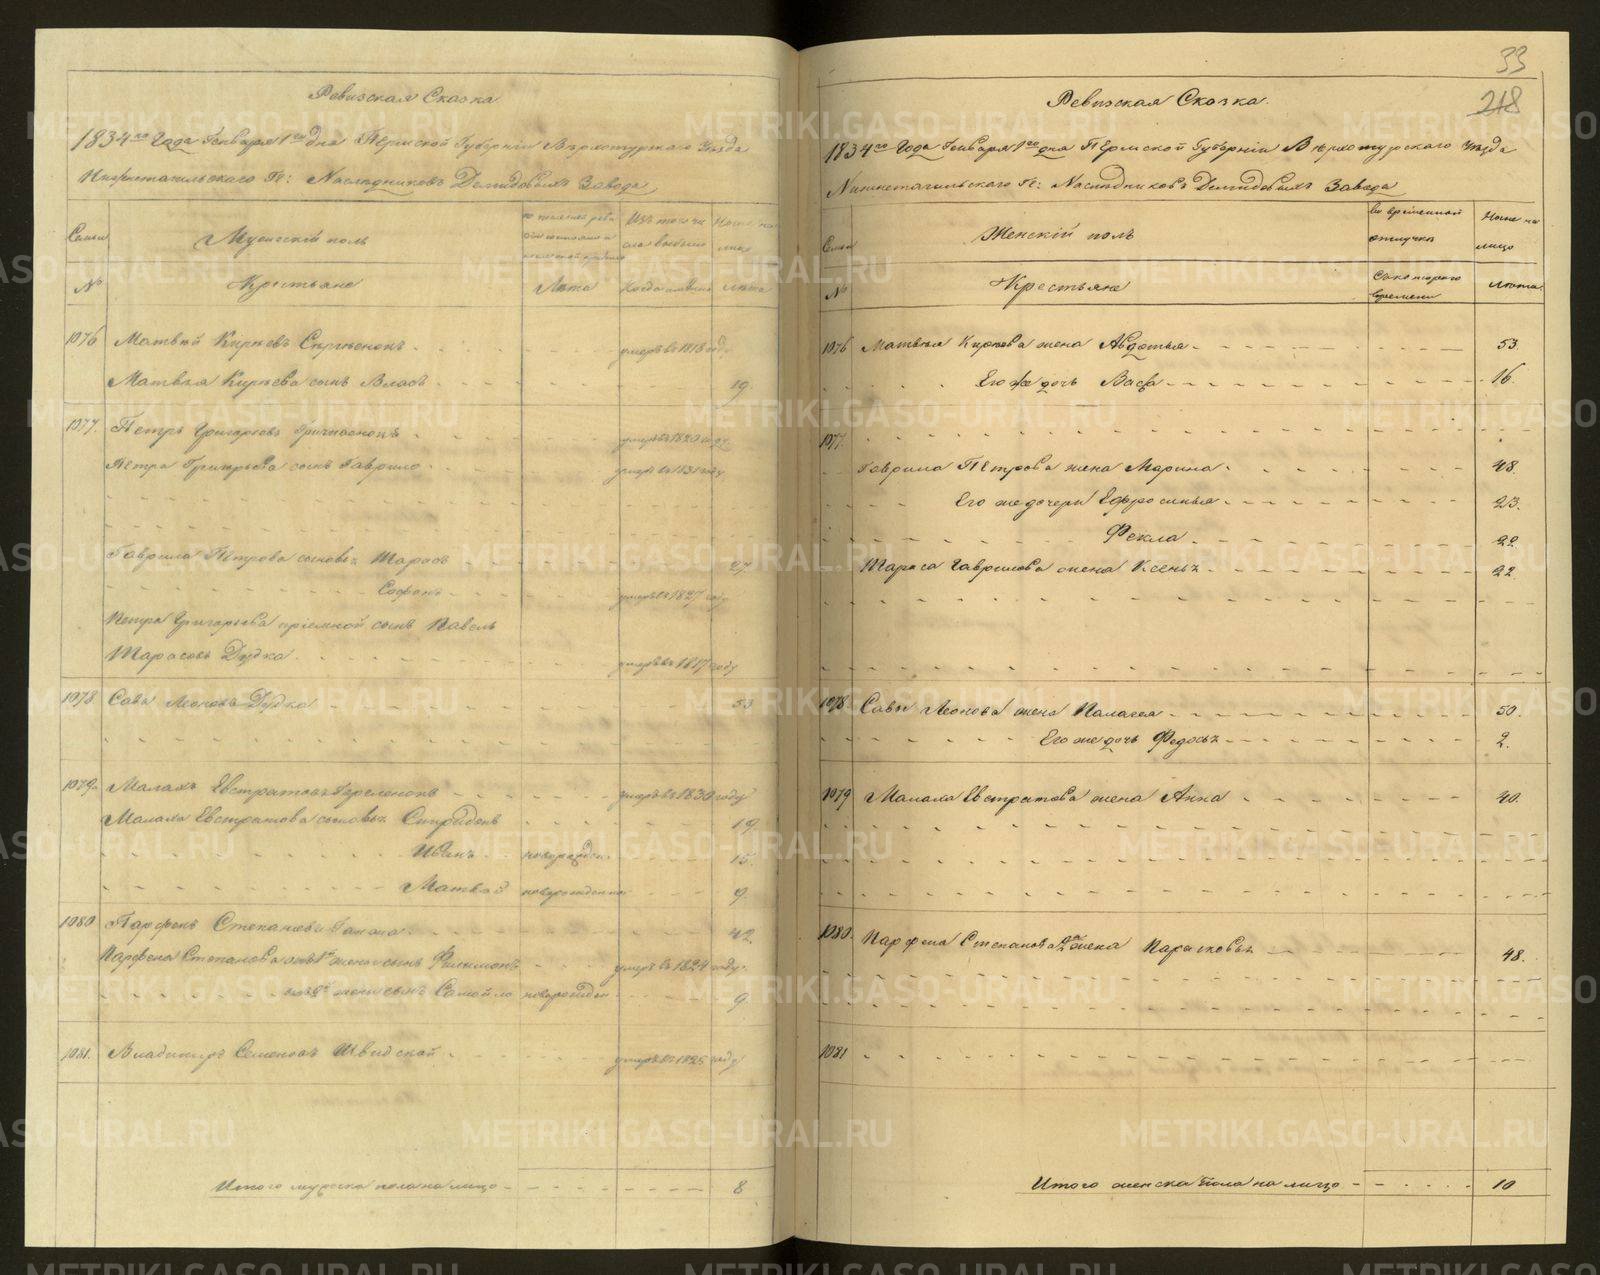 Ревизская Сказка
1834го Года Генваря 1го дня Пермской Губерніи Верхотурского Уезда
Нижнетагильского Гг: Наследниковъ Демидовыхъ Завода
Семьи
Мужескій полъ
Изъ того чи
сла выбыло
Ныне на
лицо
№
Крестьяне
Лета
Когда именно
Лета
1076 Матвей Киреевъ умеръ въ 1818 году
Матвея Киреева сынъ Власъ 19.
1077. Петръ Григорьевъ умеръ въ 1820
Петра Григорьева сынъ Гаврило умеръ въ 1831 году
Гаврила Петрова сыновья Тарасъ 27
Софонъ умеръ въ 1827 году
Петра Григорьева пріемной сынъ Павелъ
Тарасовъ Дудка умеръ въ 1817 году
1078 Сава Леоновъ Дудка 53
1079. Малахъ Евстратовъ умеръ въ 1830 году
Малаха Евстратова сыновья Спиридонъ 19
Иванъ новорожден. 15.
Матвей новорожденно 9.
1080 Парфенъ Степановъ 42
Парфена Степанова отъ 1й жены сынъ Филимонъ умеръ въ 1824 году.
отъ 2й жены сынъ Самойло новорожден 9.
1081. Владимиръ Семеновъ Швидской умеръ въ 1825 году
Итого мужеска пола на лицо 8
33
218
Ревизская Сказка.
1834го Года Генваря 1го дня Пермской Губерніи Верхотурского Уезда
Нижнетагильского Гг: Наследниковъ Демидовыхъ Завода
Семьи
Женскій полъ
во временной
отлучке
Ныне на
лицо
№
Крестьяне
Съ которого
времени
Лета
1076 Матвея Киреева жена Авдотья 53
Его же дочь Васса 16.
1077.
Гаврила Петрова жена Марина 48.
Его же дочери Ефросинья 23.
Фекла 22
Тараса Гаврилова жена Ксенья 22.
1078. Савы Леонова жена Палагея 50.
Его же дочь Федосья 2.
1079 Малаха Евстратова жена Анна 40.
1080. Парфена Степанова 2я жена Парасковья 48.
1081
Итого женска пола на лицо 10
METRIKI.GASO-URAL.RU